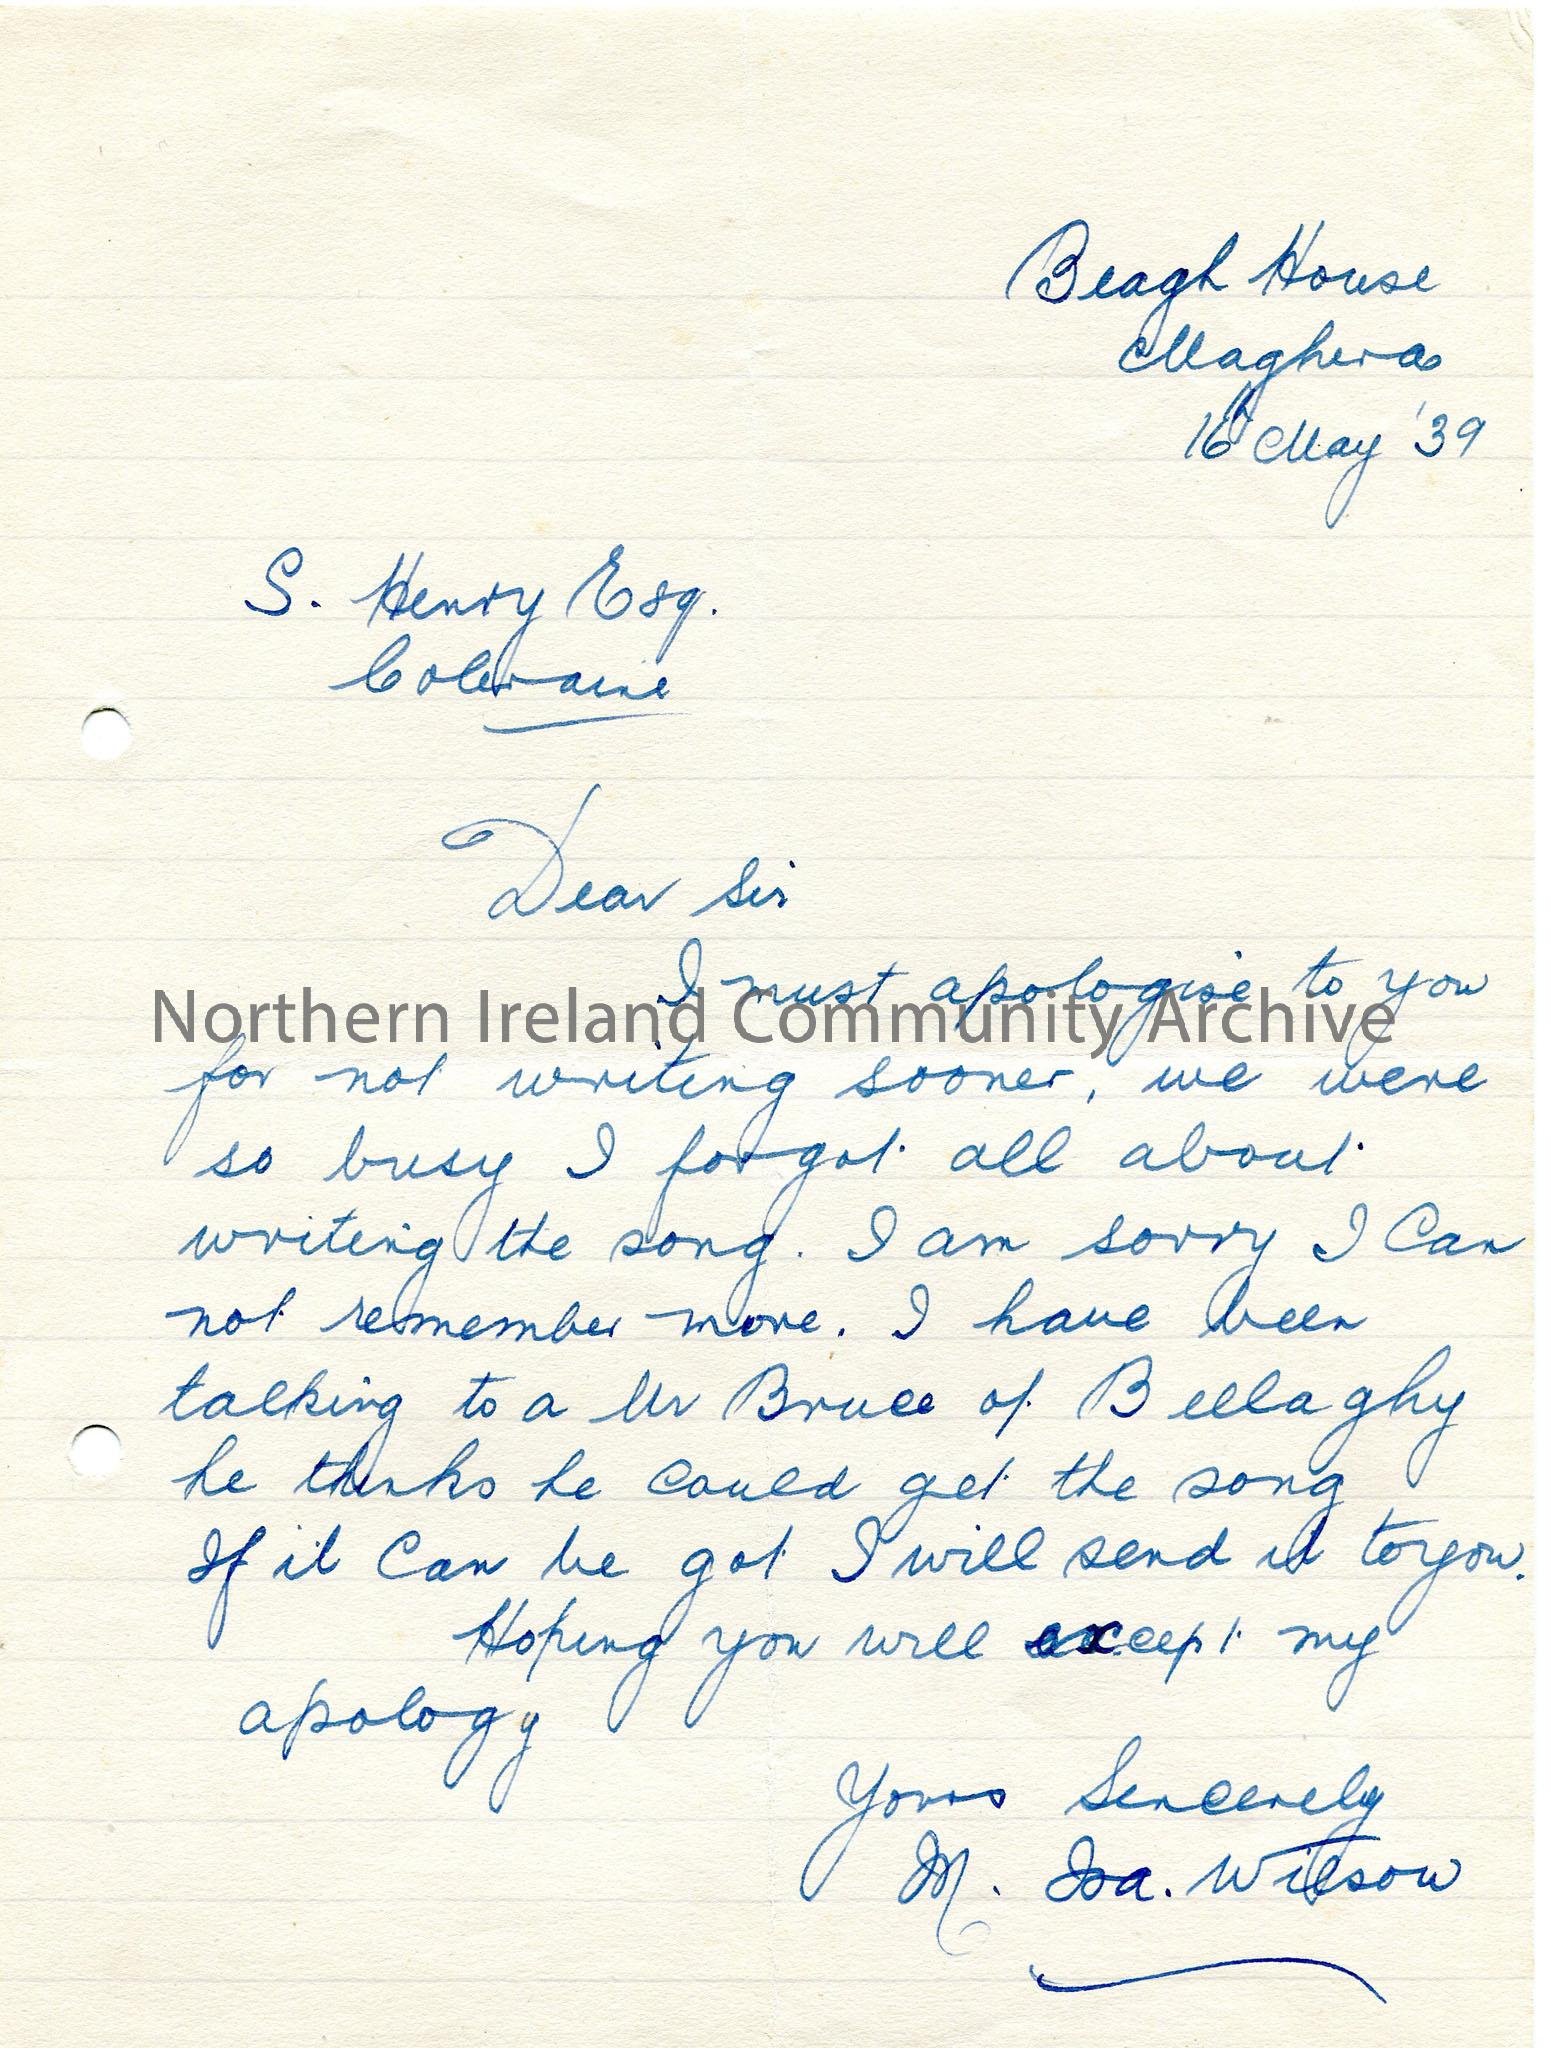 Beagh House
Maghera
16 May '39
S. Henry Esq.
Coleraine
Dear Sir
I must apologise to you
Northern Ireland Community Archive
for not writing sooner, we were
so busy I forgot all about
writing the song. I am sorry I Can
not remember more. I have been
talking to a Mr Bruce of Bellaghy
he thinks he could get the song
If it Can be got I will send it to you.
Hoping you will except my
apology
Yours Sincerely
M. Isa. Wilson